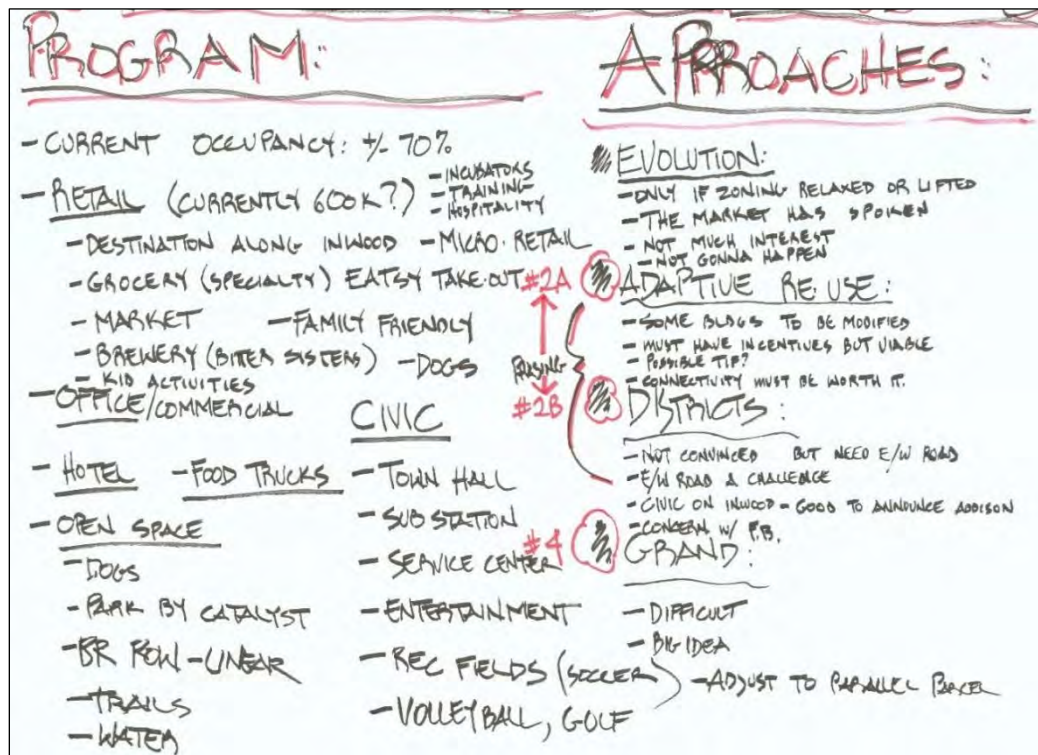 PROGRAM:
- CURRENT OCCUPANCY: +/- 70%
- RETAIL (CURRENTLY 600K?)
- INCUBATORS
- TRAINING
- HOSPITALITY
- DESTINATION ALONG INWOOD - MICRO-RETAIL
- GROCERY (SPECIALTY) EATSY TAKE-OUT
- MARKET - FAMILY FRIENDLY
- BREWERY (BITER SISTERS) - DOGS
- KID ACTIVITIES
- OFFICE/COMMERCIAL
- HOTEL - FOOD TRUCKS
- OPEN SPACE
- DOGS
- PARK BY CATALYST
- BR ROW - LINEAR
- TRAILS
- WATER
CIVIC
- TOWN HALL
- SUB STATION
- SERVICE CENTER
- ENTERTAINMENT
- REC FIELDS (SOCCER)
- VOLLEYBALL, GOLF
APPROACHES:
EVOLUTION:
- ONLY IF ZONING RELAXED OR LIFTED
- THE MARKET HAS SPOKEN
- NOT MUCH INTEREST
- NOT GONNA HAPPEN
#2A
ADAPTIVE RE USE:
- SOME BLDGS TO BE MODIFIED
- MUST HAVE INCENTIVES BUT VIABLE
- POSSIBLE TIF?
- CONNECTIVITY MUST BE WORTH IT.
PHASING
#2B
DISTRICTS:
- NOT CONVINCED BUT NEED E/W ROAD
- E/W ROAD A CHALLENGE
- CIVIC ON INWOOD - GOOD TO ANNOUNCE ADDISON
- CONCERN W/ P.B.
#4
GRAND:
- DIFFICULT
- BIG IDEA
- ADJUST TO PARALLEL PARCEL